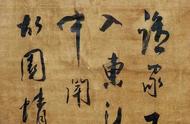 誰家玉
入東
中聞
故園情